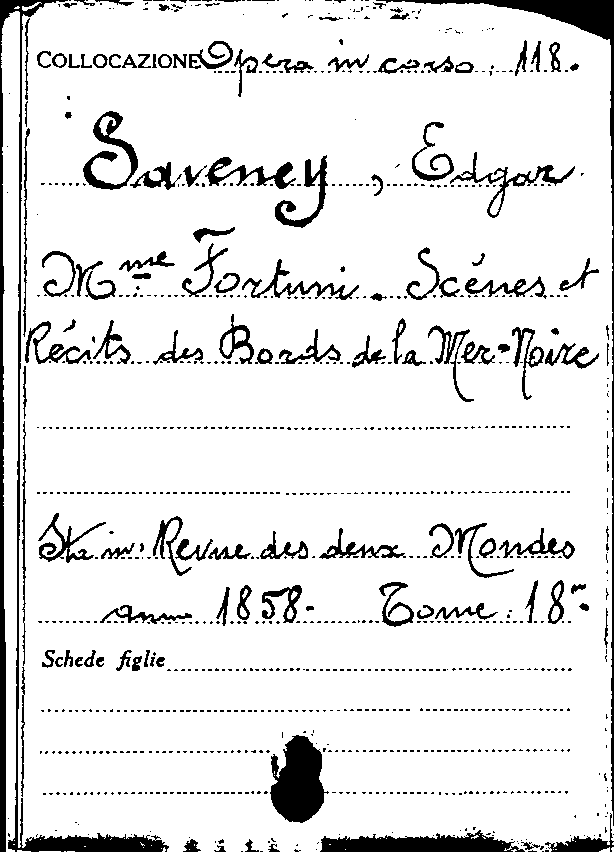 COLLOCAZIONE Opera in corso. 118.
Saveney, Edgar
Mme Fortuni. Scénes et
Récits des Bords de la Mer-Noire
Sta in: Revue des deux Mondes
anno 1858- Tome: 18me
Schede figlie